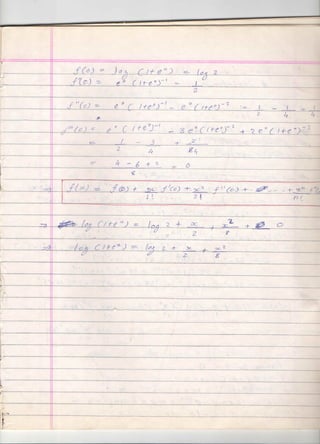 f(0) = log (1+e⁰) = log 2
f'(0) = e⁰ (1+e⁰)⁻¹ = 1/2
f''(0) = e⁰ (1+e⁰)⁻¹ - e⁰ (1+e⁰)⁻² = 1/2 - 1/4 = 1/4
f'''(0) = e⁰ (1+e⁰)⁻¹ - 3e⁰ (1+e⁰)⁻² + 2e⁰ (1+e⁰)⁻³
= 1/2 - 3/4 +
= 4 - 6 + 2 / 8 = 0
f(x) = f(0) + x/1! f'(0) + x²/2! f''(0) + ... + xⁿ/n!
⇒ log (1+eˣ) = log 2 + x/2 + x²/8 + 0
⇒ log (1+eˣ) = log 2 + x/2 + x²/8